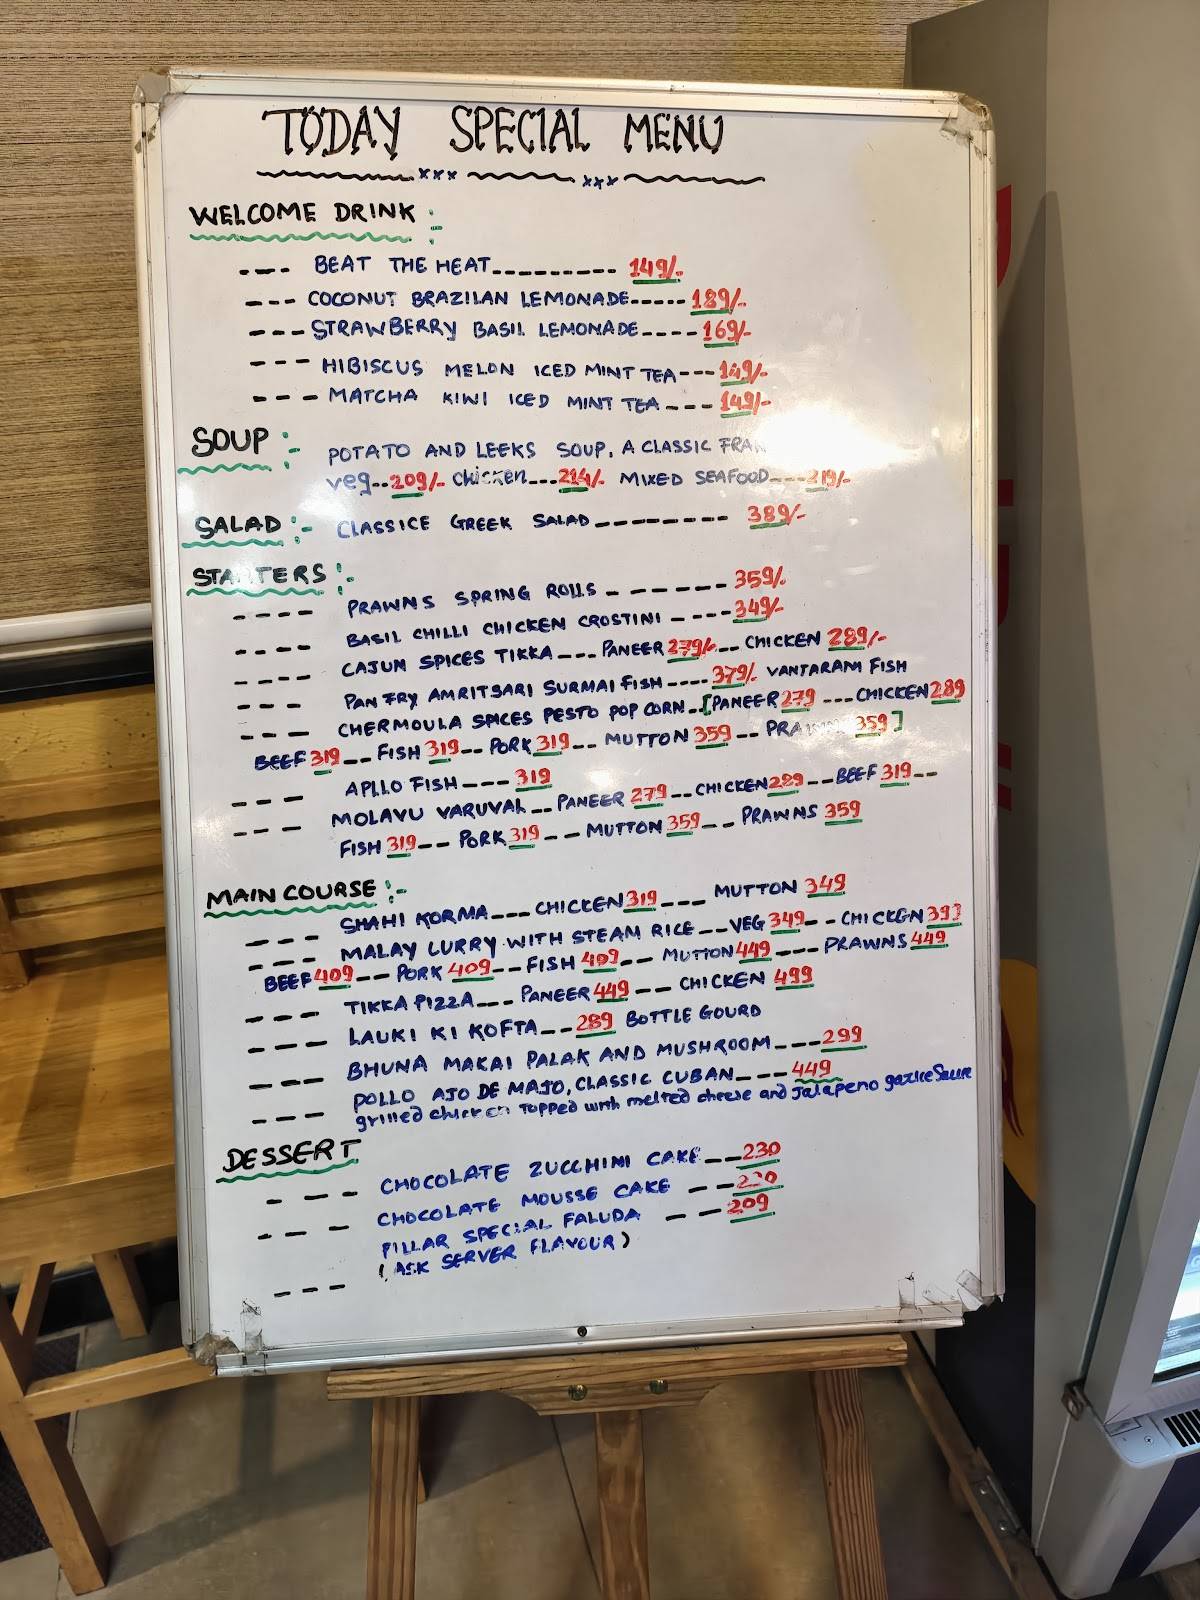 TODAY SPECIAL MENU
xxx xxx
WELCOME DRINK :-
---- BEAT THE HEAT--------- 149/-
--- COCONUT BRAZILAN LEMONADE----- 189/-
--- STRAWBERRY BASIL LEMONADE---- 169/-
--- HIBISCUS MELON ICED MINT TEA--- 149/-
--- MATCHA KIWI ICED MINT TEA--- 149/-
SOUP :- POTATO AND LEEKS SOUP, A CLASSIC
veg--209/- chicken---214/- MIXED SEAFOOD---219/-
SALAD :- CLASSICE GREEK SALAD-------- 389/-
STARTERS :-
---- PRAWNS SPRING ROLLS ------- 359/-
---- BASIL CHILLI CHICKEN CROSTINI ---- 349/-
---- CAJUN SPICES TIKKA--- PANEER 279/--- CHICKEN 289/-
--- PAN FRY AMRITSARI SURMAI FISH---- 379/- VANJARAM FISH
--- CHERMOULA SPICES PESTO POP CORN--[PANEER 279 --- CHICKEN 289
BEEF 319 -- FISH 319 -- PORK 319 -- MUTTON 359 -- PRAWNS 359]
--- APLLO FISH --- 319
--- MOLAVU VARUVAL -- PANEER 279 -- CHICKEN 289 -- BEEF 319 --
FISH 319 -- PORK 319 -- MUTTON 359 -- PRAWNS 359
MAIN COURSE :-
--- SHAHI KORMA --- CHICKEN 319 --- MUTTON 349
--- MALAY CURRY WITH STEAM RICE -- VEG 349 -- CHICKEN
BEEF 409 -- PORK 409 -- FISH 409 -- MUTTON 449 --- PRAWNS 449
--- TIKKA PIZZA --- PANEER 449 -- CHICKEN 499
--- LAUKI KI KOFTA -- 289 BOTTLE GOURD
--- BHUNA MAKAI PALAK AND MUSHROOM --- 299
--- POLLO AJO DE MAJO, CLASSIC CUBAN --- 449
grilled chicken topped with melted cheese and Jalapeno
DESSERT
--- CHOCOLATE ZUCCHINI CAKE -- 230
--- CHOCOLATE MOUSSE CAKE -- 220
PILLAR SPECIAL FALUDA --- 209
--- (ASK SERVER FLAVOUR)